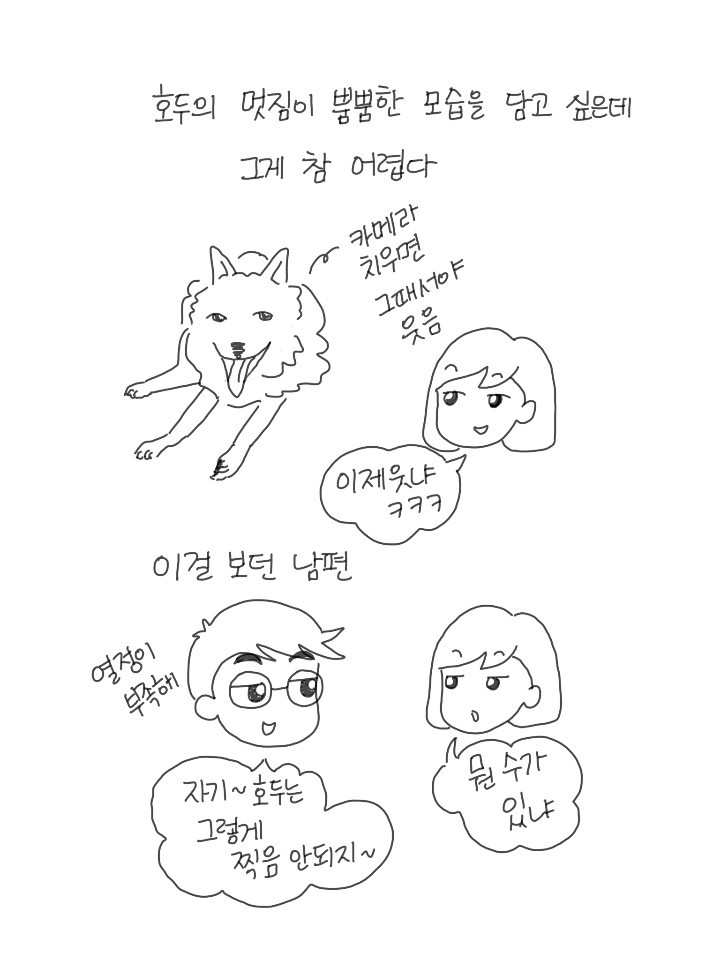 호두의 멋짐이 뿜뿜한 모습을 담고 싶은데
그게 참 어렵다
카메라
치우면
그때서야
웃음
이제웃냐
ㅋㅋㅋ
이걸 보던 남편
열정이
부족해
자기~ 호두는
그렇게
찍음 안되지~
뭔 수가
있냐